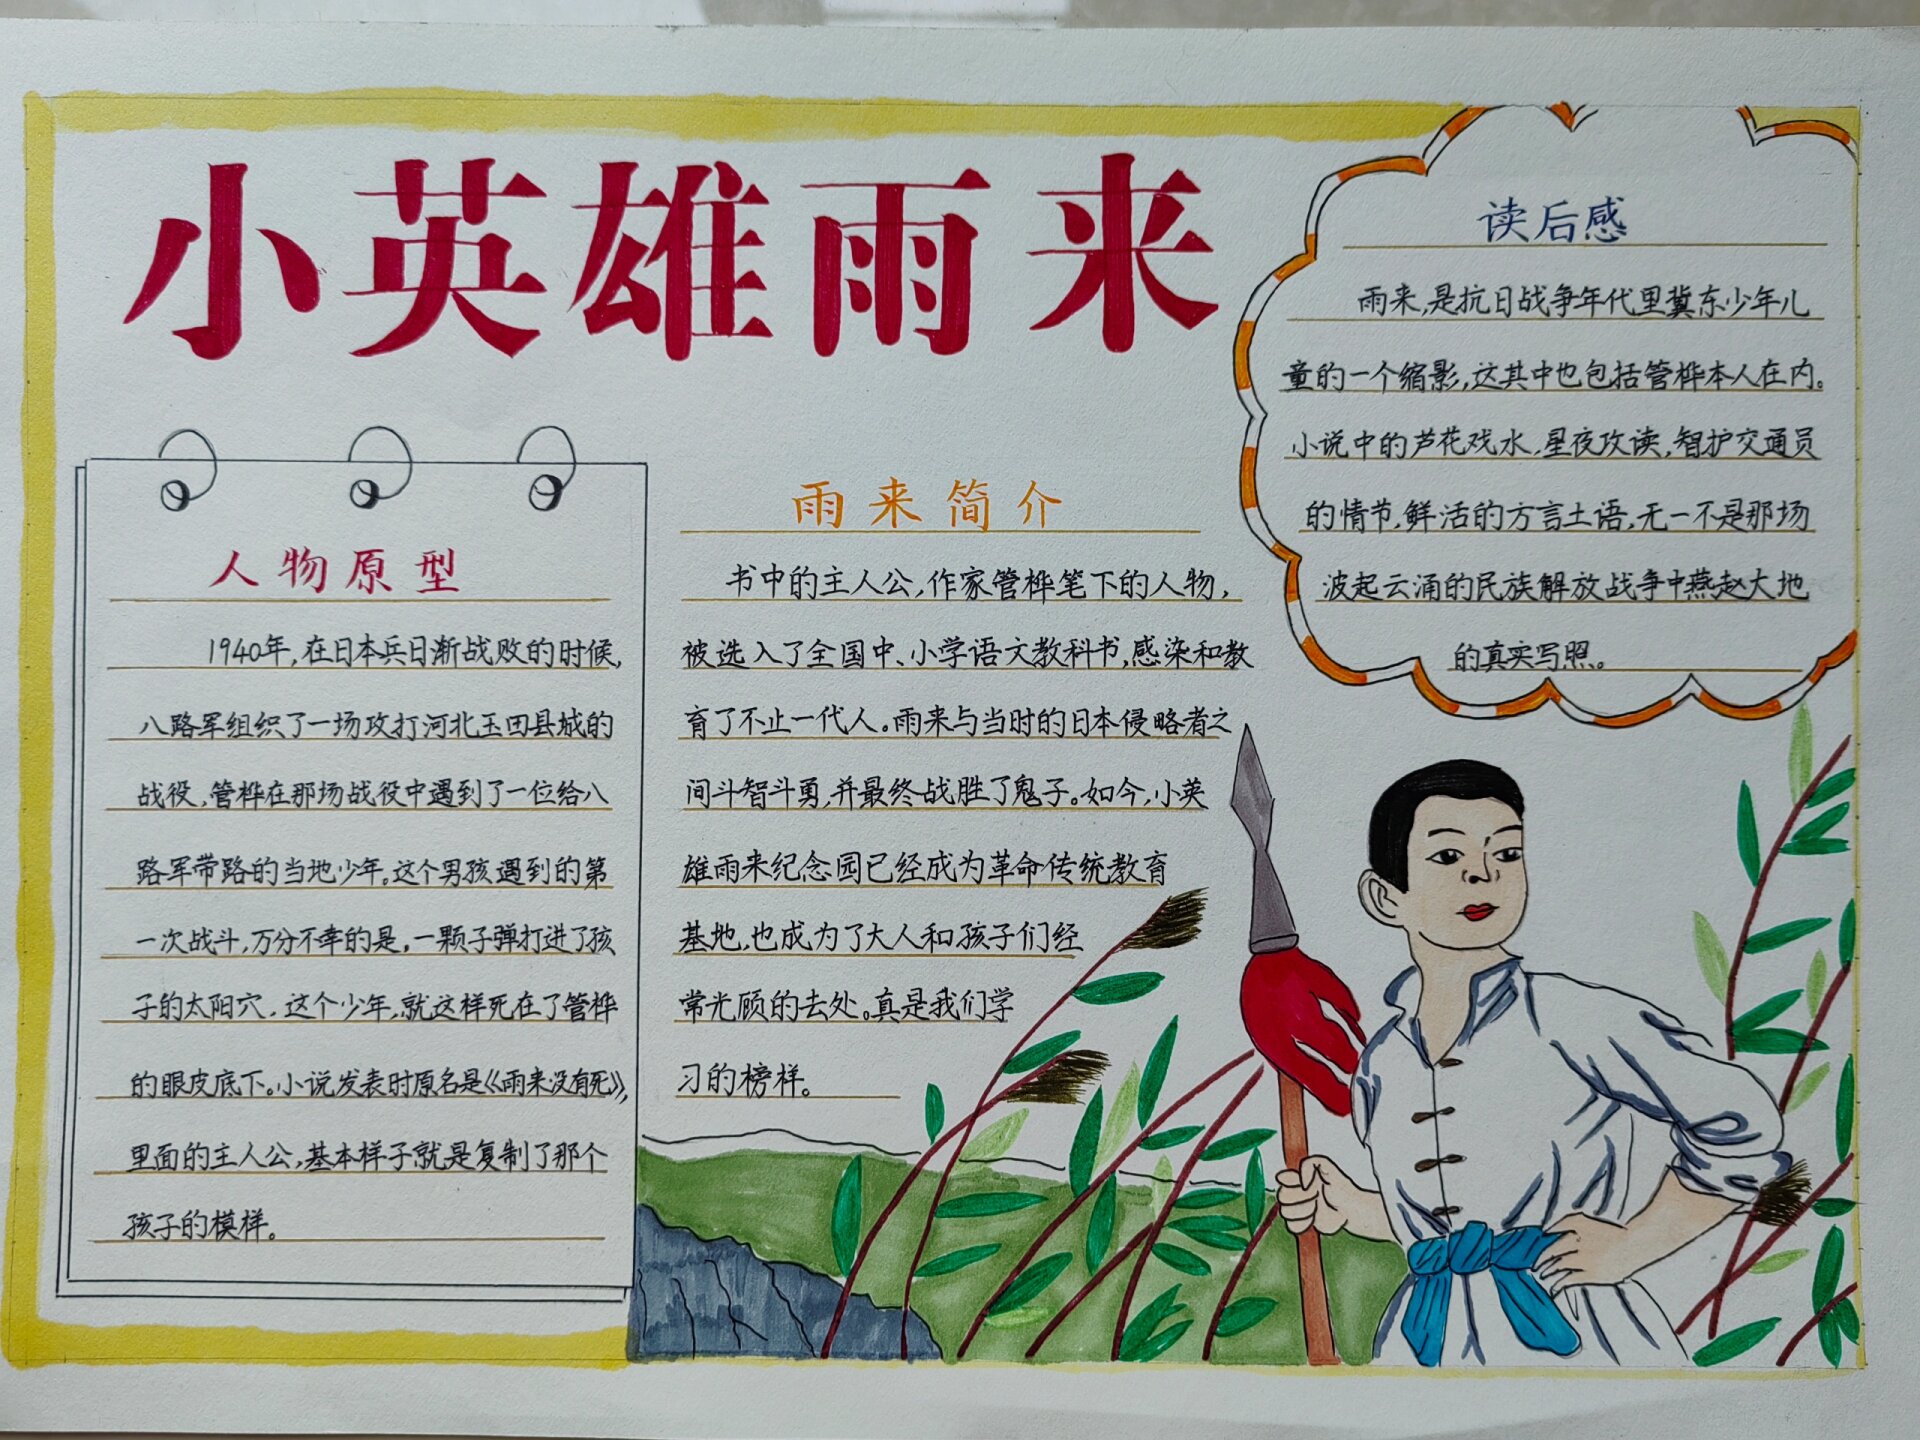 小英雄雨来
人物原型
1940年,在日本兵日渐战败的时候,
八路军组织了一场攻打河北玉田县城的
战役,管桦在那场战役中遇到了一位给八
路军带路的当地少年。这个男孩遇到的第
一次战斗,万分不幸的是,一颗子弹打进了孩
子的太阳穴,这个少年,就这样死在了管桦
的眼皮底下。小说发表时原名是《雨来没有死》,
里面的主人公,基本样子就是复制了那个
孩子的模样。
雨来简介
书中的主人公,作家管桦笔下的人物,
被选入了全国中、小学语文教科书,感染和教
育了不止一代人。雨来与当时的日本侵略者之
间斗智斗勇,并最终战胜了鬼子。如今,小英
雄雨来纪念园已经成为革命传统教育
基地,也成为了大人和孩子们经
常光顾的去处。真是我们学
习的榜样。
读后感
雨来,是抗日战争年代里冀东少年儿
童的一个缩影,这其中也包括管桦本人在内。
小说中的芦花戏水,星夜攻读,智护交通员
的情节,鲜活的方言土语,无一不是那场
波起云涌的民族解放战争中燕赵大地
的真实写照。